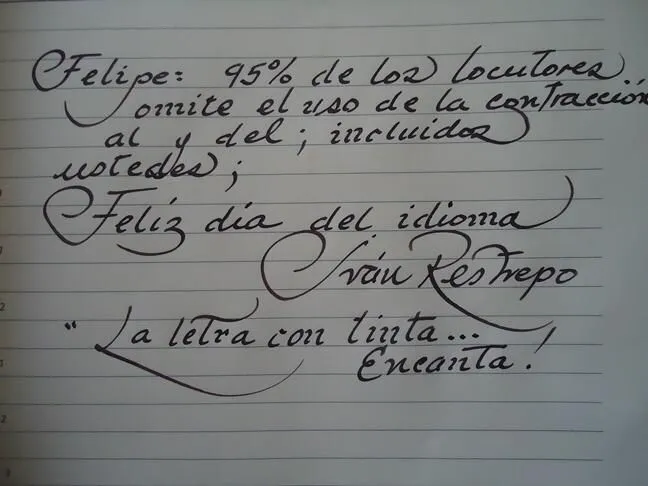 Felipe: 95% de los locutores
omite el uso de la contracción
al y del; incluidos
ustedes;
Felíz día del idioma
Iván Restrepo
"La letra con tinta...
Encanta!